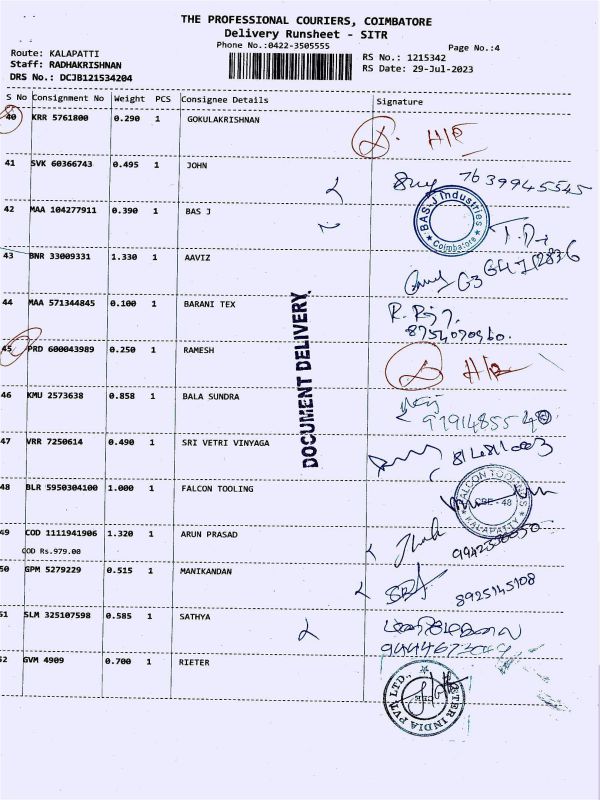 THE PROFESSIONAL COURIERS, COIMBATORE
Delivery Runsheet - SITR
Phone No.:0422-3505555
Page No.:4
Route: KALAPATTI
RS No.: 1215342
Staff: RADHAKRISHNAN
RS Date: 29-Jul-2023
DRS No.: DCJB121534204
S No Consignment No Weight PCS Consignee Details Signature
40 KRR 5761800 0.290 1 GOKULAKRISHNAN
41 SVK 60366743 0.495 1 JOHN
7639945545
42 MAA 104277911 0.390 1 BAS J
BAS J Industries
Coimbatore
43 BNR 33009331 1.330 1 AAVIZ
44 MAA 571344845 0.100 1 BARANI TEX
45 PRD 600043989 0.250 1 RAMESH
46 KMU 2573638 0.858 1 BALA SUNDRA
47 VRR 7250614 0.490 1 SRI VETRI VINYAGA
48 BLR 5950304100 1.000 1 FALCON TOOLING
FALCON TOOLING
CBE - 48
KALAPATTY
49 COD 1111941906 1.320 1 ARUN PRASAD
COD Rs.979.00
50 GPM 5279229 0.515 1 MANIKANDAN
8925145108
51 SLM 325107598 0.585 1 SATHYA
52 GVM 4909 0.700 1 RIETER
INDIA PVT LTD.
DOCUMENT DELIVERY.